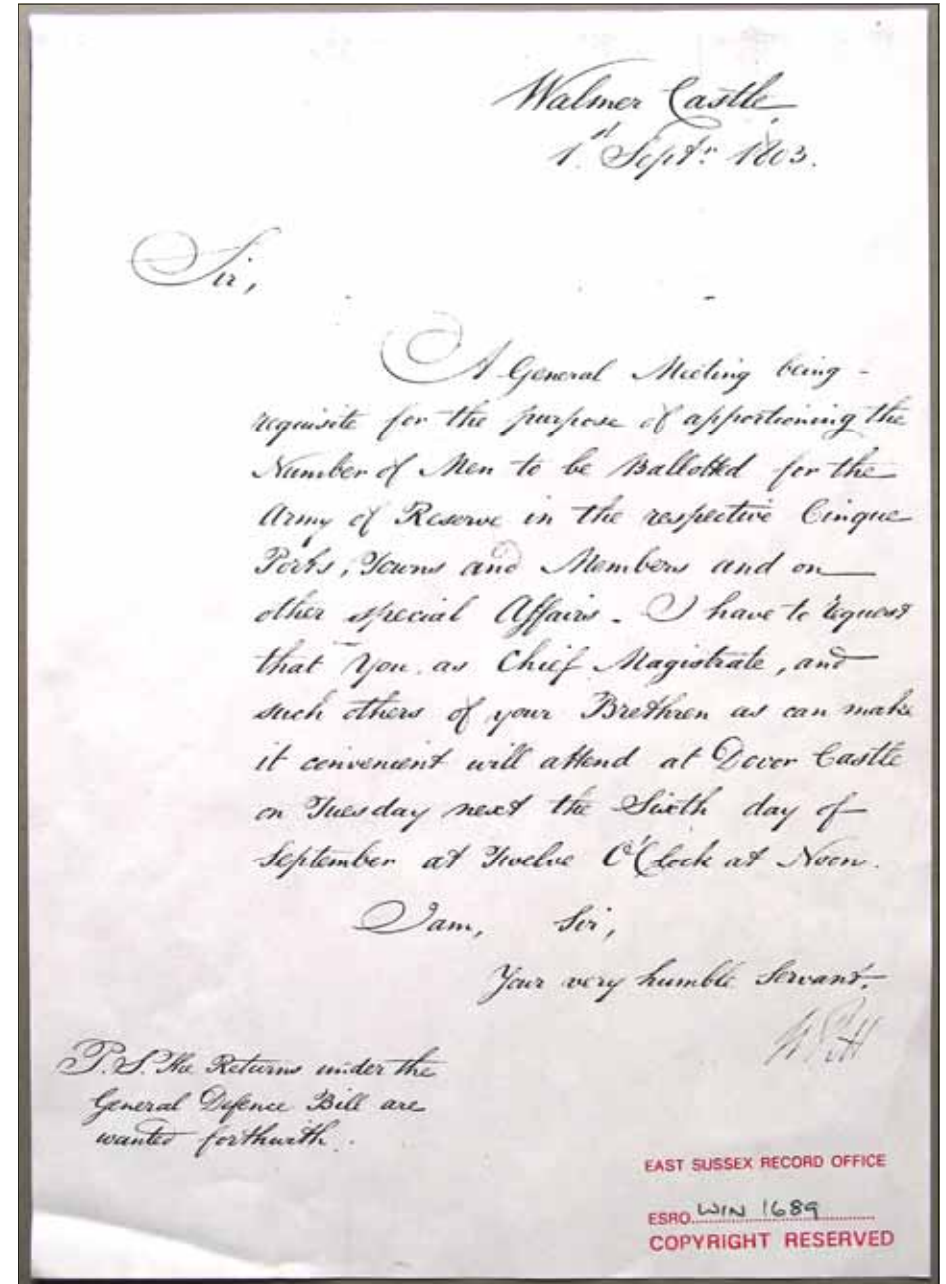 Walmer Castle
1st Septr. 1803.
Sir,
A General Meeting being -
requisite for the purpose of apportioning the
Number of Men to be Ballotted for the
Army of Reserve in the respective Cinque
Ports, Towns and Members and on
other special Affairs - I have to request
that You as Chief Magistrate, and
such others of your Brethren as can make
it convenient will attend at Dover Castle
on Tuesday next the Sixth day of
September at Twelve O'Clock at Noon.
I am, Sir,
Your very humble Servant.
W Pitt
P.S. The Returns under the
General Defence Bill are
wanted forthwith.
EAST SUSSEX RECORD OFFICE
ESRO WIN 1689
COPYRIGHT RESERVED